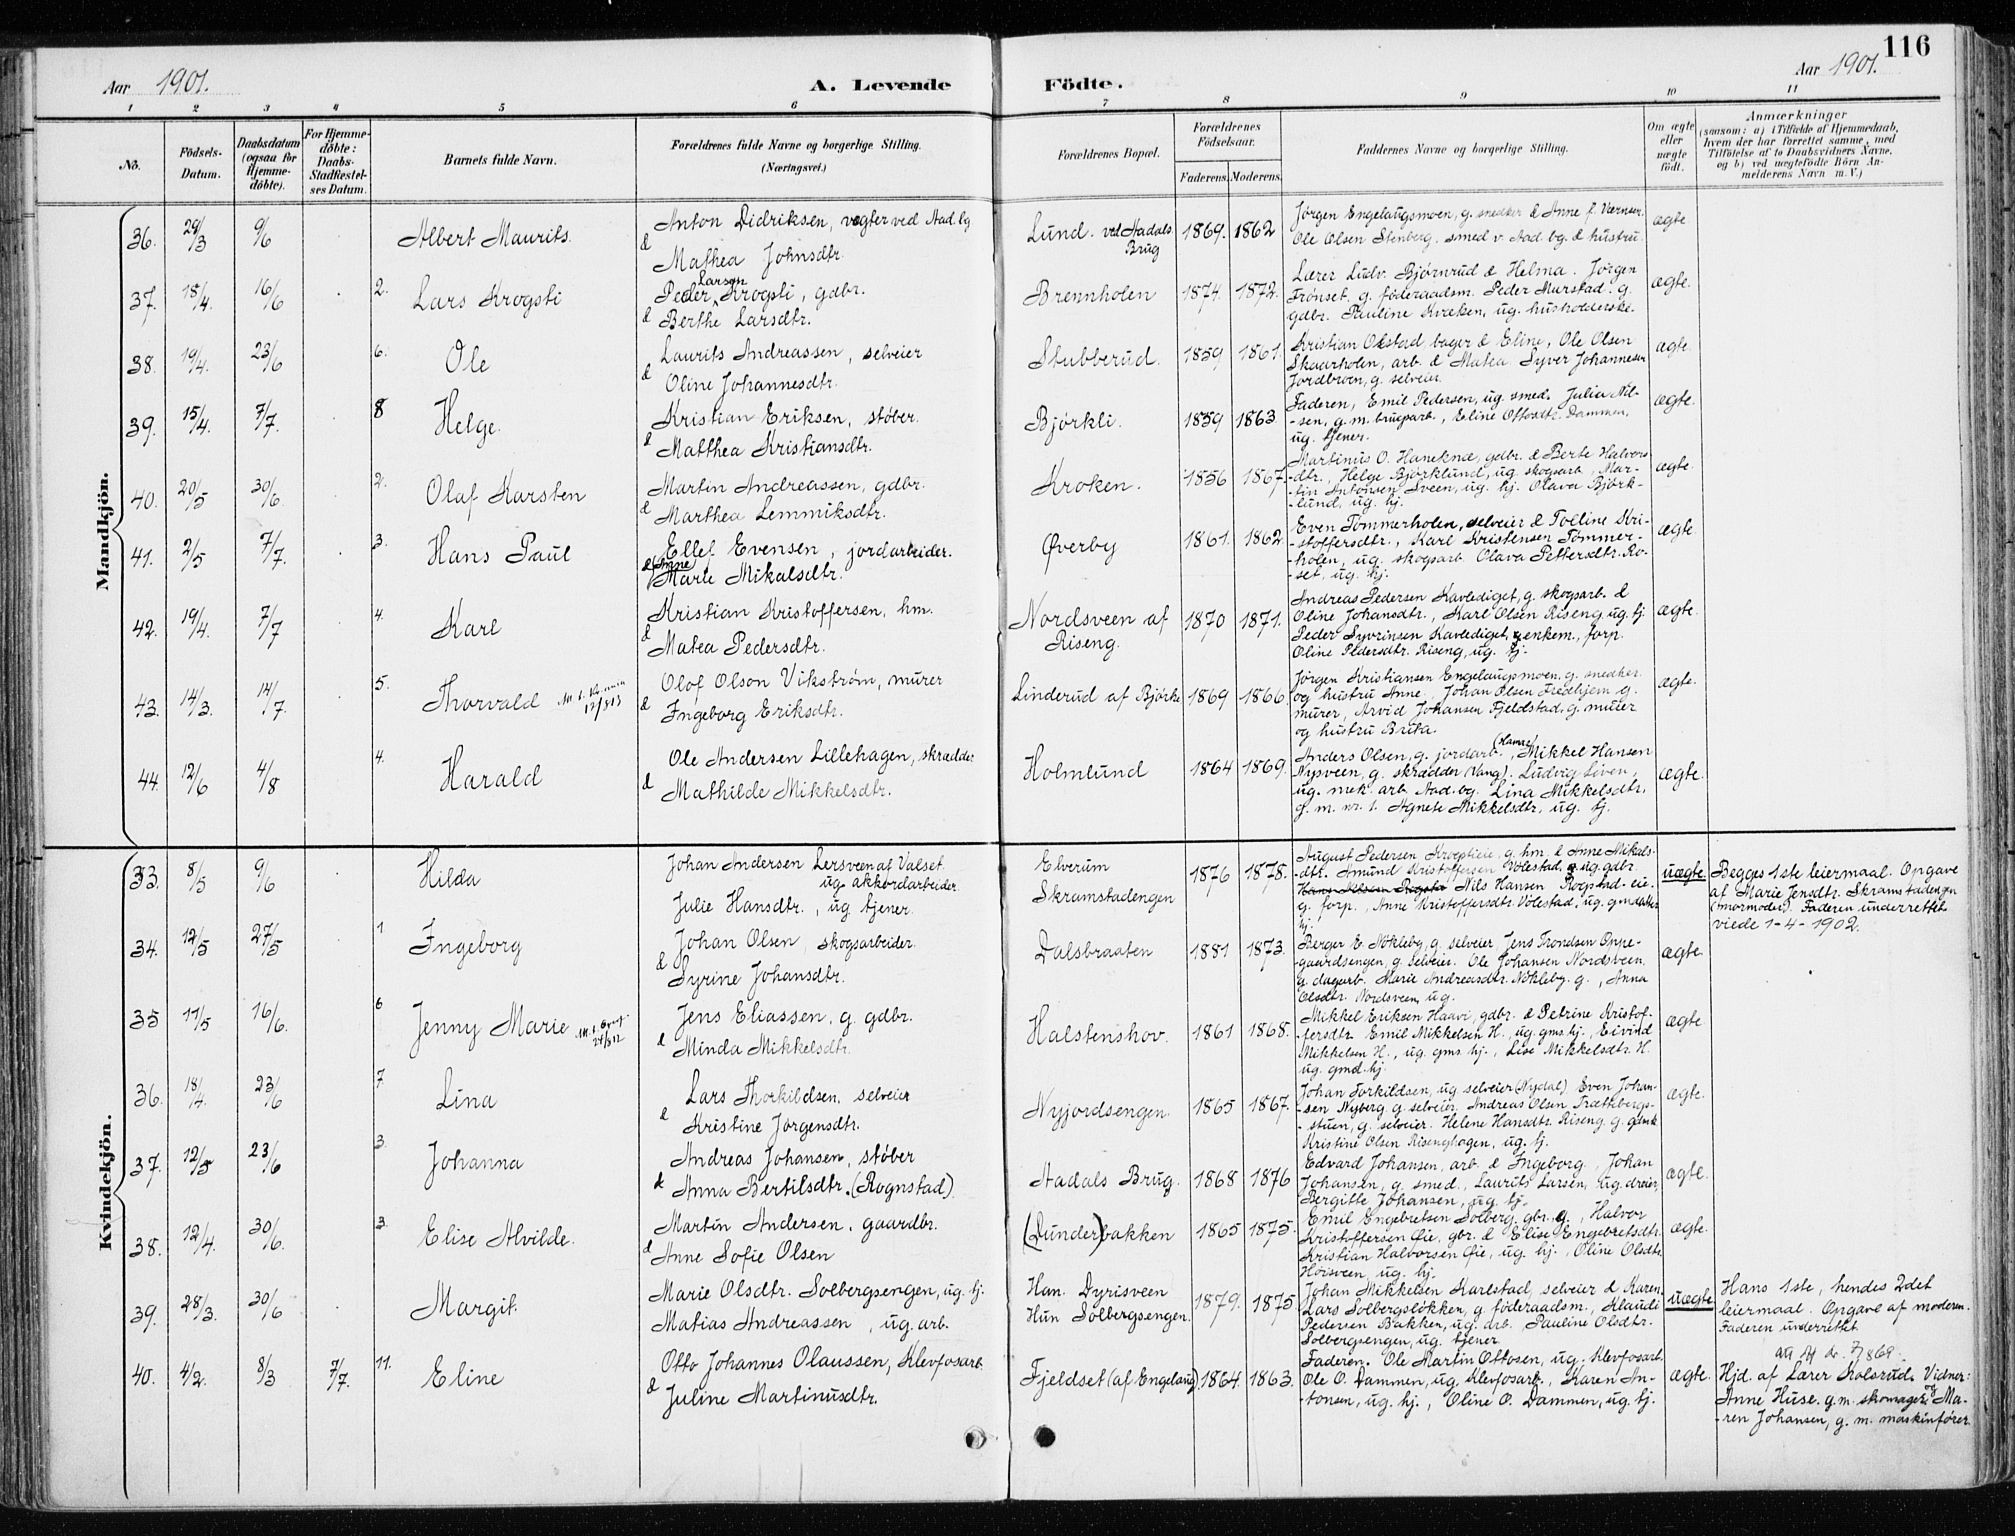 116
Aar 1901. A. Levende Födte. Aar 1901.
1 2 3 4 5 6 7 8 9 10 11
No.
Födsels-Datum.
Daabsdatum (ogsaa for Hjemme-döbte).
For Hjemme-döbte: Daabs-Stadfæstel-ses Datum.
Barnets fulde Navn.
Forældrenes fulde Navne og borgerlige Stilling.
(Næringsvei.)
Forældrenes Bopæl.
Forældrenes Födselsaar.
Faderens. Moderens.
Faddernes Navne og borgerlige Stilling.
Om ægte eller uægte födt.
Anmærkninger
(saasom: a) i Tilfælde af Hjemmedaab,
hvem der har forrettet samme, med
Tilföielse af to Daabsvidners Navne,
og b) ved uægtefödte Börn An-
melderens Navn m. V.)
Mandkjön.
36. 29/3 9/6 Albert Maurits.
Anton Didriksen, vægter ved Aad. bg
& Mathea Johnsdtr.
Lund. ved Aadals Brug 1869. 1862
Jørgen Engelaugsmoen, g. snedker & Anne f. Værnser.
Ole Olsen Stenberg. smed v. Aad. bg. & hustru.
ægte
37. 18/4. 16/6 2. Lars Krogsti
Larsen
Peder Krogsti, gdbr.
& Berthe Larsdtr.
Brennholen 1874. 1872.
Lærer Ludv. Bjørnrud & Helma. Jørgen
Frønset, g. føderaadsm. Peder Murstad. g.
gdbr. Pauline Kveken, ug. husholderske.
ægte.
38. 19/4. 23/6 6. Ole
Laurits Andreassen, selveier
& Oline Johannesdtr.
Stubberud. 1859 1861.
Kristian Okstad bager & Eline, Ole Olsen
Skaarholen, arb. & Matea Syver Johannesen
Jordbroen, g. selveier.
ægte.
39. 15/4. 7/7. 8 Helge.
Kristian Eriksen, støber.
& Matthea Kristiansdtr.
Bjørkli. 1859 1863
Faderen, Emil Pedersen, ug. smed. Julia Nil-
-sen, g. m. brugsarb., Eline Ottosdtr. Dammen,
ug. tjener.
ægte.
40. 20/5 30/6 2. Olaf Karsten
Martin Andreassen, gdbr.
& Marthea Lemmiksdtr.
Kroken. 1856 1867.
Martinus O. Haneknæ, gdbr. & Berte Halvors-
-dtr., Helge Bjørklund, ug. skogsarb., Mar-
tin Antonsen Sveen, ug. hj. Olava Bjørk-
-lund, ug. hj.
ægte.
41. 2/5 7/7. 3. Hans Paul
Ellef Evensen, jordarbeider.
& (Anne) Marte Mikalsdtr.
Øverby 1861. 1862
Even Tømmerholen, selveier & Tolline Kri-
-stoffersdtr., Karl Kristensen Tømmer-
-holen, ug. skogsarb. Olava Pettersdtr. Ro-
-set, ug. hj.
ægte.
42. 19/4. 7/7 4. Karl
Kristian Kristoffersen, hm.
& Matea Pedersdtr.
Nordsveen af Riseng. 1870 1871.
Andreas Pedersen Kavlediget, g. skogsarb. &
Oline Johansdtr., Karl Olsen Riseng ug. tj.
Peder Syvrinsen Kavlediget, enkem., forp.
Oline Pedersdtr. Riseng, ug. tj.
ægte.
43. 14/3. 14/7. 5. Thorvald 12/8 13
Olof Olson Vikstrøm, murer
& Ingeborg Eriksdtr.
Linderud af Bjørke 1869 1866
Jørgen Kristiansen Engelaugsmoen, g. snedker.
og hustru Anne, Johan Olsen Fredhjem g.
murer, Arvid Johansen Fjeldstad, g. murer
og hustru Brita.
ægte.
44. 12/6 4/8 4. Harald
Ole Andersen Lillehagen, skrædder
& Mathilde Mikkelsdtr.
Holmlund 1864 1869.
Anders Olsen, g. jordarb. (Hamre), Mikkel Hansen
Nysveen, g. skrædder (Vang). Ludvig Liven,
ug. mek. arb. Aad. bg. Lina Mikkelsdtr.
g. m. nr. 1. Agnete Mikkelsdtr, ug. tj.
ægte.
Kvindekjön.
33. 8/5 9/6 Hilda
Johan Andersen Lersveen af Valset
ug. akkordarbeider.
Julie Hansdtr., ug. tjener.
Elverum
Skramstadengen 1876 1878.
August Pedersen, g. hm. & Anne Mikals-
dtr. Amund Kristoffersen Volestad, ug. gdbr.
Nils Hansen Rogstad-eie.
g. forp., Anne Kristoffersdtr Volestad, ug. gmdatter
hj.
uægte.
Begges 1ste leiermaal. Opgave
af Marie Jensdtr. Skramstadengen
(mormoder). Faderen underrettet
viede 1-4-1902.
34. 12/5 27/5 1 Ingeborg
Johan Olsen, skogsarbeider.
& Syrine Johansdtr.
Dalsbraaten 1881 1873.
Berger E. Nøkleby, g. selveier, Jens Trondsen Oppe-
-gaardsengen, g. selveier. Ole Johansen Nordsveen,
g. dagarb. Marie Andreasdtr. Nøkleby. g., Anna
Olsdtr. Nordsveen, ug.
ægte.
35 17/5 16/6. 6 Jenny Marie 24/3 12
Jens Eliassen, g. gdbr.
& Minda Mikkelsdtr.
Halstenshov. 1861 1868.
Mikkel Eriksen Haavi, gdbr. & Petrine Kristof-
-fersdtr. Emil Mikkelsen H., ug. gms. hj., Eivind
Mikkelsen H., ug. gms. hj., Lise Mikkelsdtr. H.
ug. gmd. hj.
ægte
36. 18/4. 23/6 7. Lina
Lars Thorkildsen, selveier
& Kristine Jørgensdtr.
Nyjordsengen. 1865 1867.
Johan Torkildsen, ug selveier (Nydal) Even Johan-
-sen Nyberg, g. selveier, Andreas Olsen Trætbergs-
-stuen, g. selveier. Helene Hansdtr. Riseng. g. gdmk
Kristine Olsen Risenghagen, ug. tj.
ægte.
37. 12/5 23/6 3. Johanna
Andreas Johansen, støber
& Anna Bertilsdtr. (Rognstad)
Aadals Brug. 1868 1876
Edvard Johansen, arb. & Ingeborg. Johan
Johansen, g. smed., Laurits Larsen, ug. dreier,
Bergitte Johansen, ug. tj.
ægte.
38. 12/4. 30/6. 3. Elise Alvilde.
Martin Andersen, gaardbr.
& Anne Sofie Olsen
(Dunder)bakken 1865 1875.
Emil Engebretsen Solberg. gbr. g., Halvor
Kristoffersen Øie, gbr. & Elise Engebretsdtr.
Kristian Halvorsen Øie, ug. hj., Oline Olsdtr
Hoisveen, ug. hj.
ægte.
39. 28/3. 30/6 Margit.
Marie Olsdtr. Solbergsengen, ug. tj.
Matias Andreassen, ug. arb.
Han. Dyrisveen
Hun Solbergsengen. 1879. 1875
Johan Mikkelsen Karlstad, selveier & Karen
Lars Solbergsløkken, g. føderaadsm., Klaudi
Pedersen Bakken, ug. arb. Pauline Olsdtr.
Solbergsengen, ug. tjener
uægte
Hans 1ste, hendes 2det
leiermaal. Opgave af moderen.
Faderen underrettet
40. 4/2. 8/3 7/7. 11. Eline
Otto Johannes Olaussen, Klevfosarb.
& Juline Martinusdtr.
Fjeldset (af Engelaug) 1864. 1863.
Faderen. Ole Martin Ottosen, ug. Klevfosarb.
Ole O. Dammen, ug. Klevfosarb., Karen An-
-tonsen, ug. hj., Oline O. Dammen, ug. tj.
ægte.
Hjd. af Lærer Kolsrud. Vidner:
Anne Huse. g. m. skomager og Ma-
-ren Johansen, g. m. maskinfører.